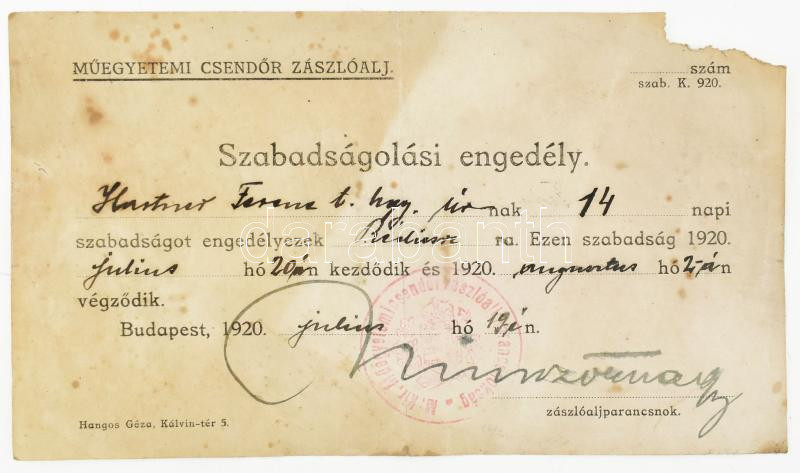 MŰEGYETEMI CSENDŐR ZÁSZLÓALJ.
szám
szab. K. 920.
Szabadságolási engedély.
Hartner Ferenc t. hag. úr nak 14 napi
szabadságot engedélyezek ra. Ezen szabadság 1920.
julius hó 20án kezdődik és 1920. augusztus hó 2-án
végződik.
Budapest, 1920. julius hó 19én.
zászlóaljparancsnok.
Hangos Géza, Kálvin-tér 5.
darabanth